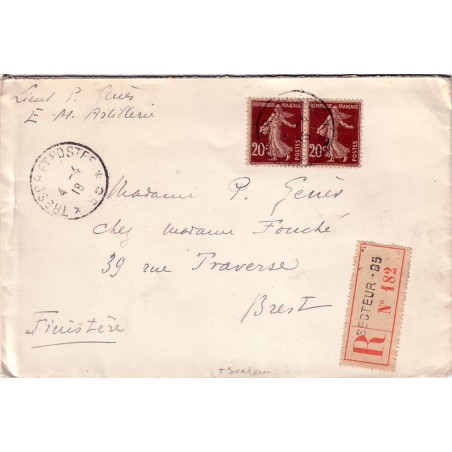 Lieut P. Genès
E. M. Artillerie
TRESOR ET POSTES
4 -4
18
REPUBLIQUE FRANÇAISE
20c POSTES
REPUBLIQUE FRANÇAISE
20c POSTES
Madame P. Genès
chez madame Fouché
39 rue Traverse
Brest
Finistère
R SECTEUR - 95
No 482
+ Secteur